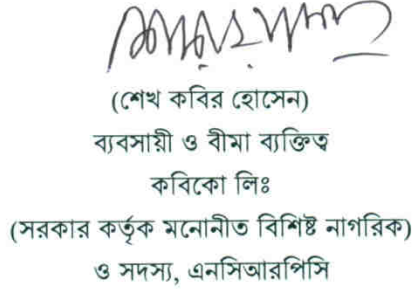 (শেখ কবির হোসেন)
ব্যবসায়ী ও বীমা ব্যক্তিত্ব
কবিকো লিঃ
(সরকার কর্তৃক মনোনীত বিশিষ্ট নাগরিক)
ও সদস্য, এনসিআরপিসি